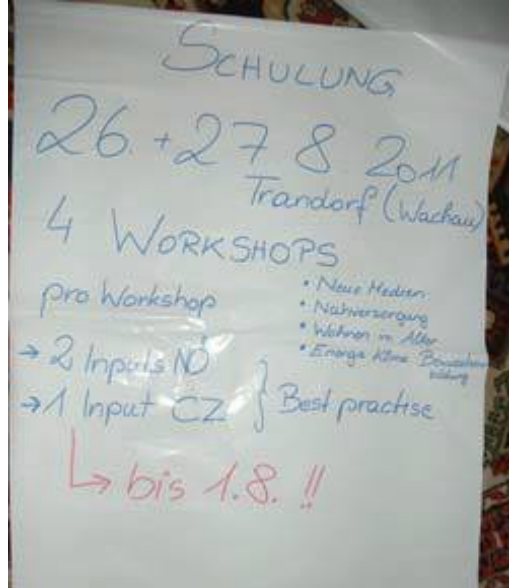 SCHULUNG
26. + 27 8 2011
Trandorf (Wachau)
4 WORKSHOPS
pro Workshop
• Neue Medien
• Nahversorgung
• Wohnen im Alter
• Energie Klima
→ 2 Inputs NÖ
→ 1 Input CZ } Best practise
↳ bis 1.8. !!